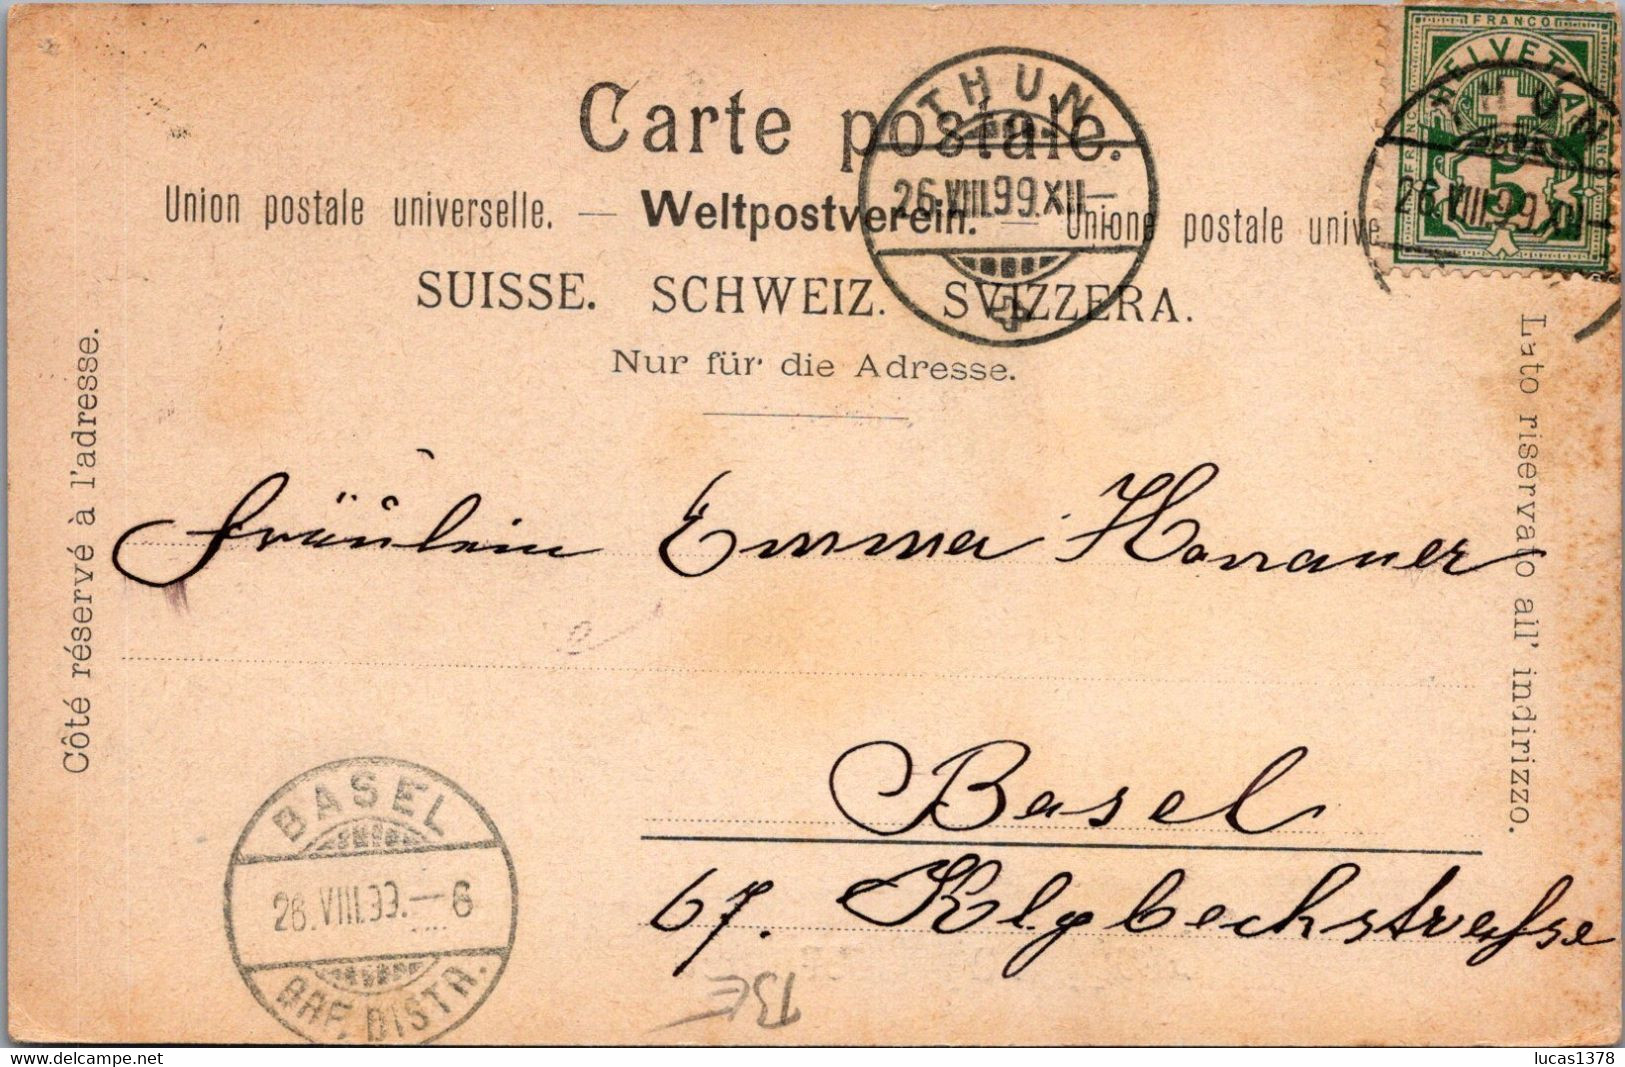 Carte postale.
Union postale universelle. — Weltpostverein. — Unione postale unive
SUISSE. SCHWEIZ. SVIZZERA.
Nur für die Adresse.
THUN
26.VIII.99.XII—
FRANCO
HELVETIA
FRANCO
FRANCO
5
THUN
26.VIII.99.XII
Côté réservé à l'adresse.
Lato riservato all' indirizzo.
Fräulein Emma Hanauer
Basel
67. Klybeckstrasse
BASEL
26.VIII.99.—6
BRF. DISTR.
BE
lucas1378